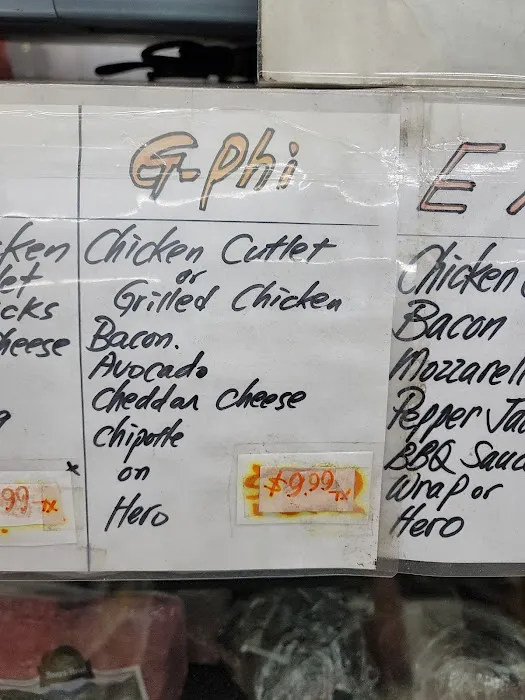 G-Phi
Chicken Cutlet
or
Grilled Chicken
Bacon.
Avocado
Cheddar Cheese
Chipotle
on
Hero
$9.99 TX
cken
let
icks
heese
99 TX
E
Chicken
Bacon
Mozzarell
Pepper Ja
BBQ Sauc
Wrap or
Hero